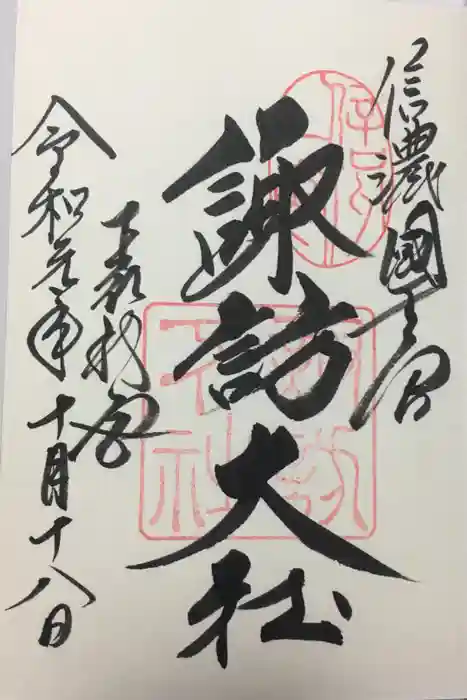 信濃國一之宮
諏訪大社
下社秋宮
令和元年十月十八日